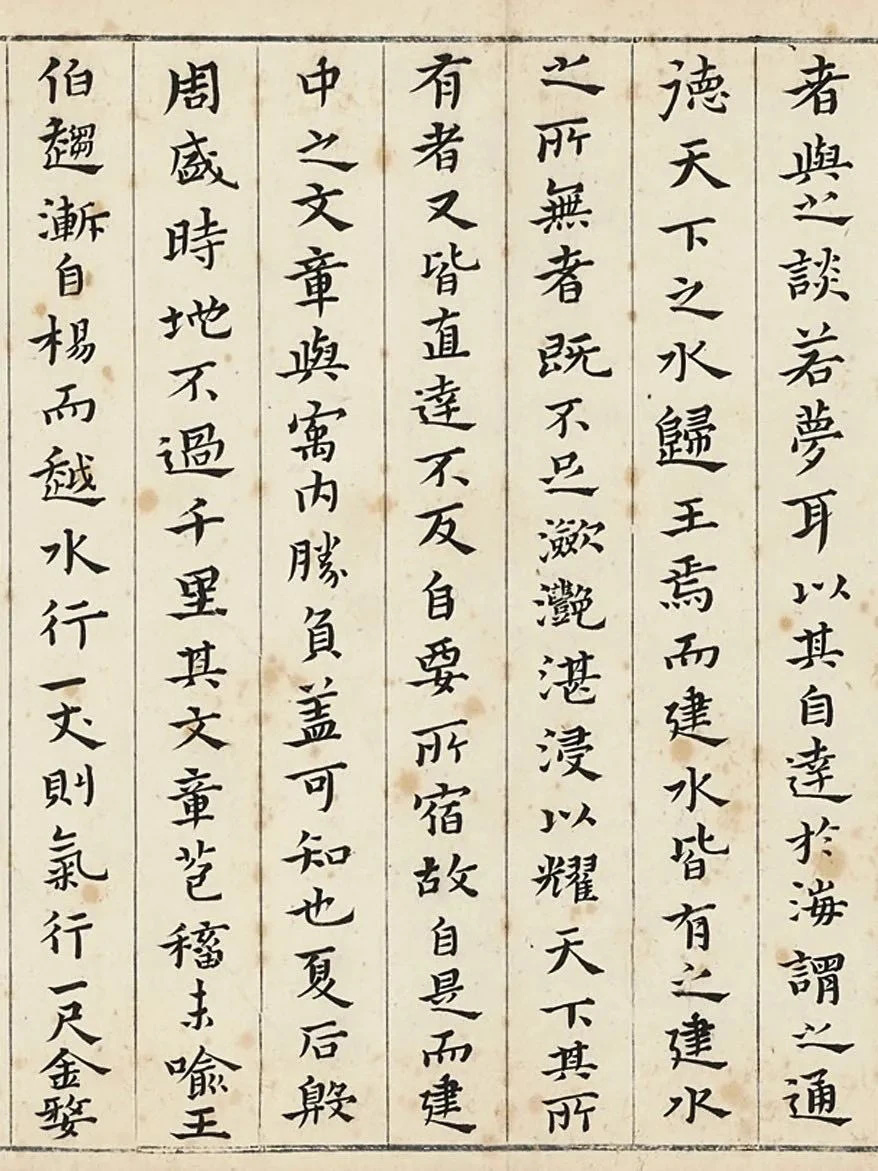 者與之談若夢耳以其自達於海謂之通
德天下之水歸王焉而建水皆有之建水
之所無者既不足瀲灔湛浸以耀天下其所
有者又皆直達不反自要所宿故自是而建
中之文章與寓内勝負盖可知也夏后殷
周盛時地不過千里其文章苞穡未喻王
伯趨漸自楊而越水行一丈則氣行一尺金婺